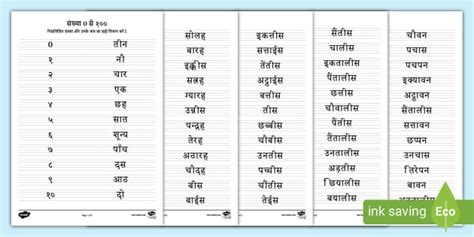 संख्या 0 से १००
0 तीन
१ नौ
२ चार
३ एक
४ छह
५ सात
६ शून्य
७ पाँच
८ दस
९ आठ
१० दो
सोलह
बारह
इक्कीस
सत्रह
ग्यारह
उन्नीस
पन्द्रह
तेरह
अठारह
चौदह
बीस
बाईस
इकतीस
सत्ताईस
तीस
अट्ठाईस
बत्तीस
चौबीस
छब्बीस
पच्चीस
उनतीस
तैंतीस
तेईस
सैंतीस
चालीस
इकतालीस
छत्तीस
चौवालीस
पैंतीस
तैंतालीस
उनतालीस
अड़तीस
छियालीस
बयालीस
चौवन
पचास
पचपन
इक्यावन
अट्ठावन
सैंतालीस
बावन
छप्पन
उनचास
तिरेपन
सत्तावन
ink saving
Eco